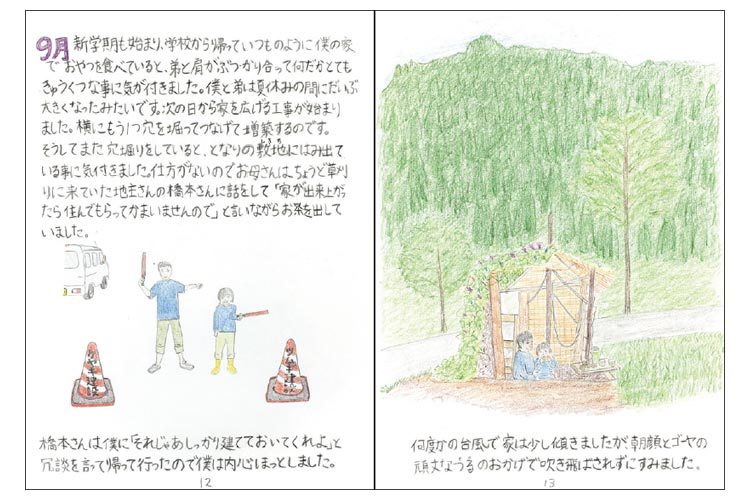 9月 新学期も始まり、学校から帰っていつものように僕の家
でおやつを食べていると、弟と肩がぶつかり合って何だかとても
きゅうくつな事に気が付きました。僕と弟は夏休みの間にだいぶ
大きくなったみたいです。次の日から家を広げる工事が始まり
ました。横にもう1つ穴を掘ってつなげて増築するのです。
そうしてまた穴堀りをしていると、となりの敷地にはみ出て
いる事に気付きました。仕方がないのでお母さんは、ちょうど草刈
りに来ていた地主さんの橋本さんに話をして「家が出来上がっ
たら住んでもらってかまいませんので」と言いながらお茶を出して
いました。
橋本さんは僕に「それじゃあしっかり建てておいてくれよ」と
冗談を言って帰って行ったので僕は内心ほっとしました。
12
何度かの台風で家は少し傾きましたが、朝顔とゴーヤの
頑丈なつるのおかげで吹き飛ばされずにすみました。
13